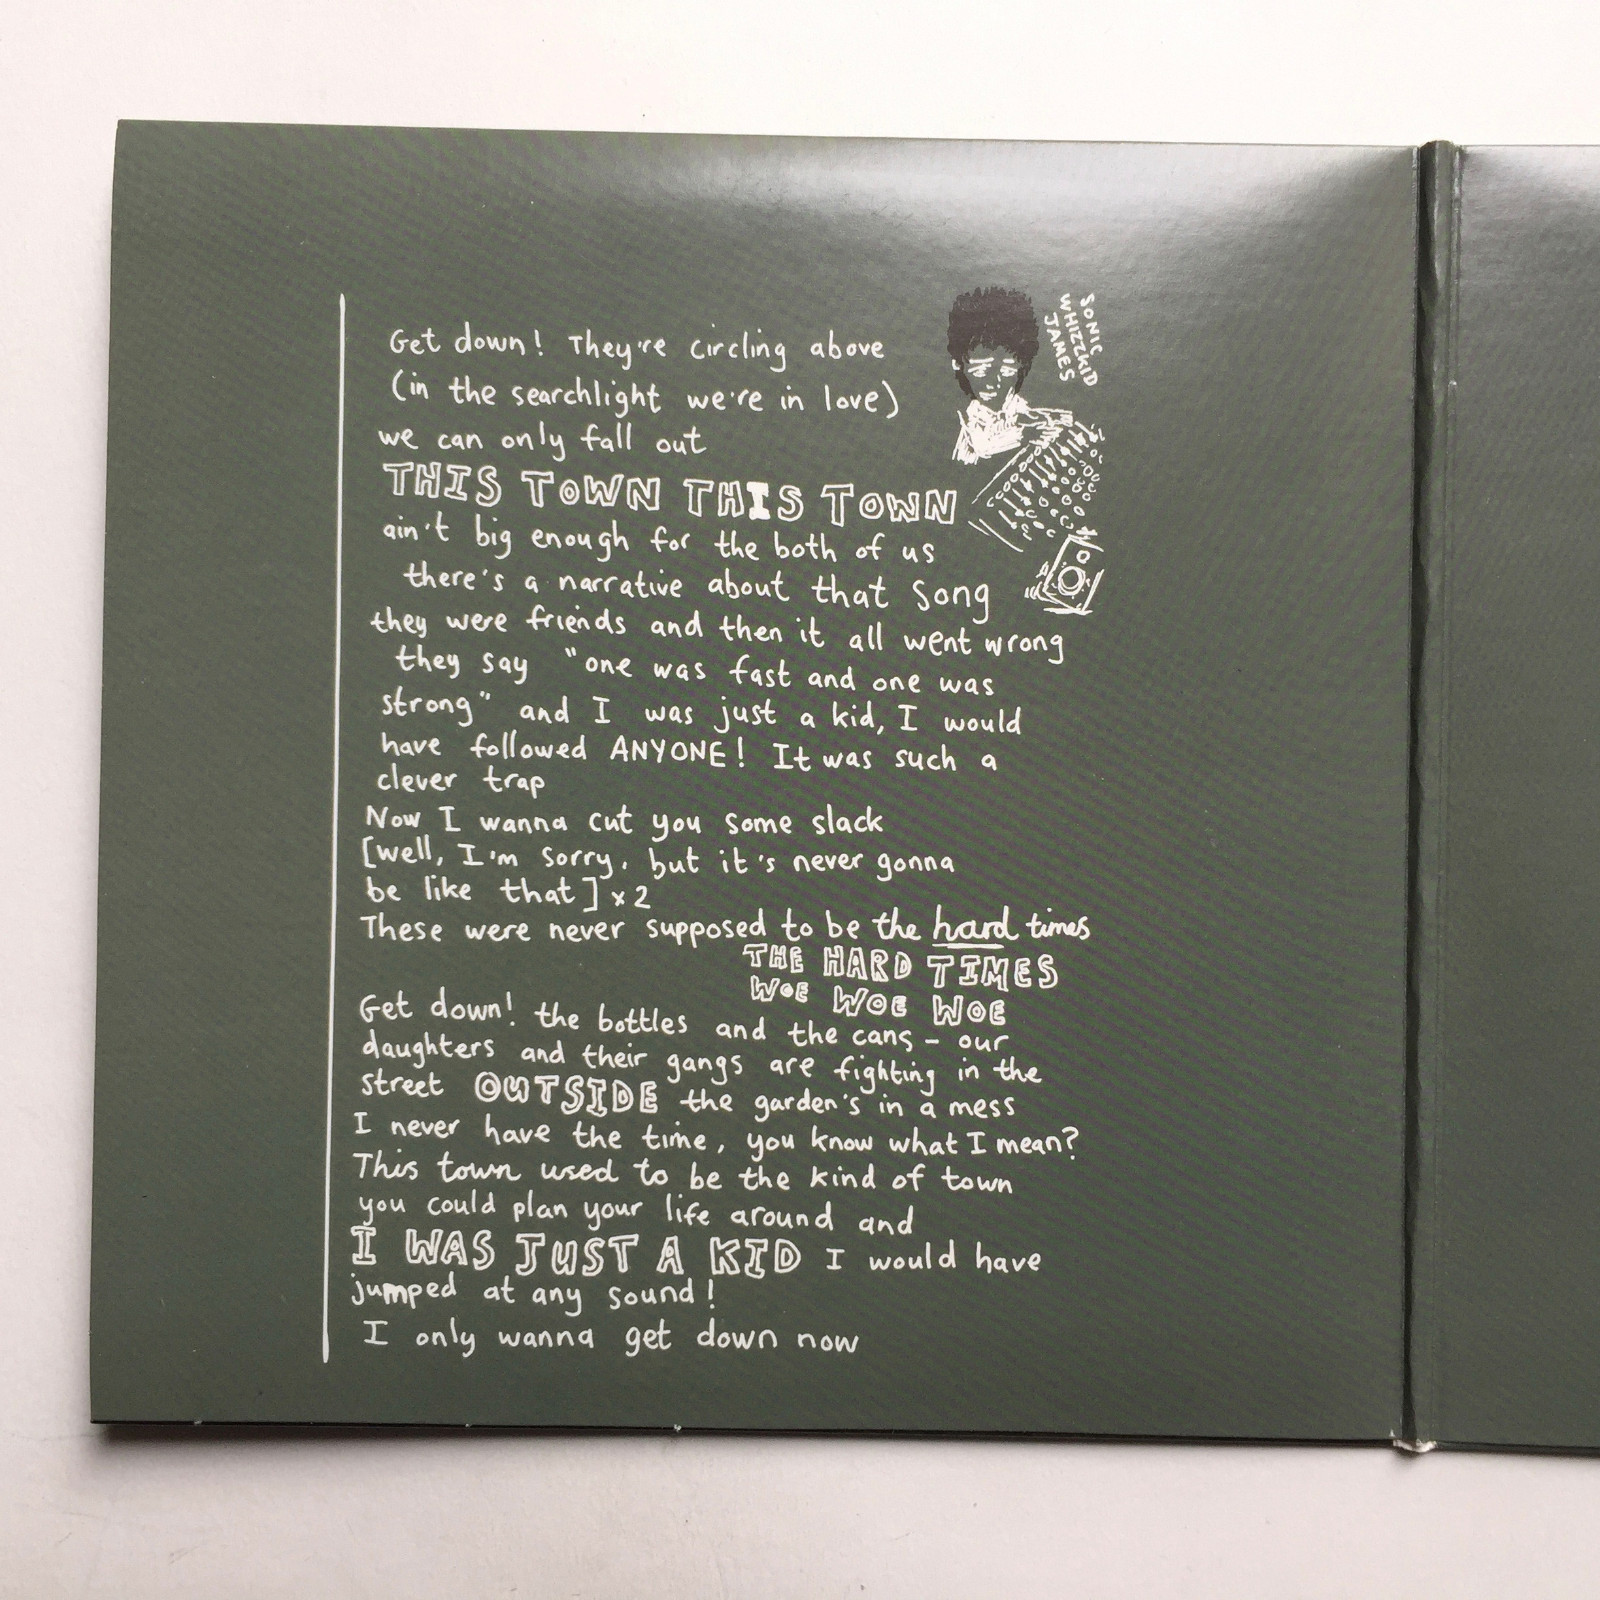 Get down! They're circling above
(in the searchlight we're in love)
we can only fall out
THIS TOWN THIS TOWN
ain't big enough for the both of us
there's a narrative about that song
they were friends and then it all went wrong
they say "one was fast and one was
strong" and I was just a kid, I would
have followed ANYONE! It was such a
clever trap
Now I wanna cut you some slack
[well, I'm sorry, but it's never gonna
be like that] x2
These were never supposed to be the hard times
THE HARD TIMES
WOE WOE WOE
Get down! the bottles and the cans - our
daughters and their gangs are fighting in the
street OUTSIDE the garden's in a mess
I never have the time, you know what I mean?
This town used to be the kind of town
you could plan your life around and
I WAS JUST A KID I would have
jumped at any sound!
I only wanna get down now
SONIC
WHIZZKID
JAMES